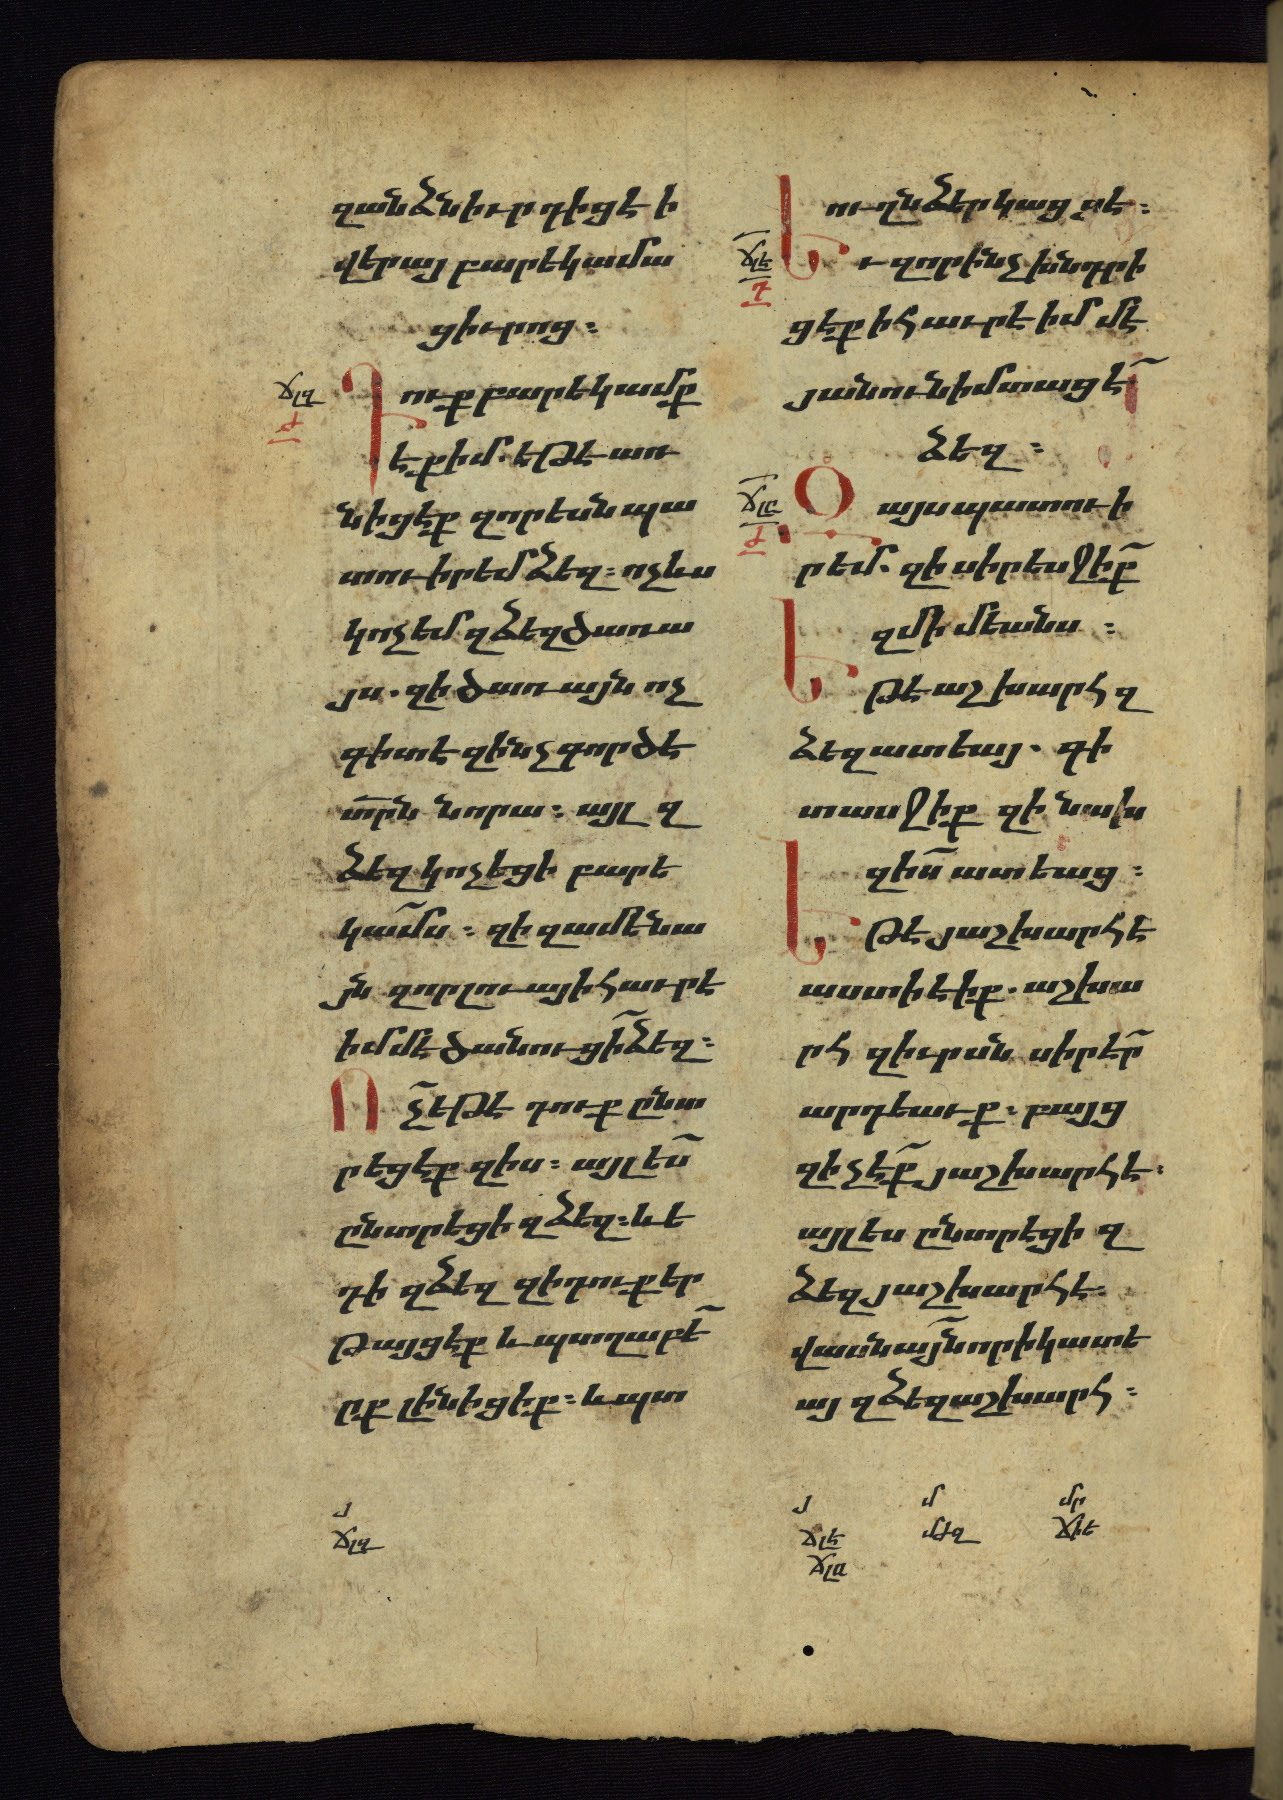 զանձն իւր դիցէ ի
վերայ բարեկամա
ց իւրոց։
ՃԼԶ
Ժ
Դուք բարեկամք
էք իմ. եթէ առ
նիցէք զոր ես պա
տուիրեմ ձեզ։ ոչ ևս
կոչեմ զձեզ ծառա
յս. զի ծառայն ոչ
գիտէ զինչ գործէ
տրն նորա։ այլ զ
ձեզ կոչեցի բարե
կամս։ զի զամենա
յն զոր լուայ ի հաւրէ
իմմէ ծանուցի ձեզ։
Ոչ եթէ դուք ընտ
րեցէք զիս։ այլ ես
ընտրեցի զձեզ։ և ե
դի զձեզ զի դուք եր
թայցէք և պտղաբե
րք լինիցիք։ և պտ
ուղն ձեր կացցէ։
ՃԼԷ
Դ
Եւ զոր ինչ խնդրի
ցէք ի հաւրէ իմմէ
յանուն իմ տացէ
ձեզ։
ՃԼԸ
Ժ
Զայս պատուի
րեմ. զի սիրեսջիք
զմիմեանս։
Եթէ աշխարհ զ
ձեզ ատեայ. գի
տասջիք զի նախ
զիս ատեաց։
Եթէ յաշխարհէ
աստի էիք. աշխա
րհ զիւրսն սիրէր
արդեաւք. բայց
զի չէք յաշխարհէ.
այլ ես ընտրեցի զ
ձեզ յաշխարհէ.
վասն այնորիկ ատե
այ զձեզ աշխարհ։
յ
ՃԼԶ
յ մ մր
ՃԼԷ ՄԺԶ ՃԻԵ
ՃԼԸ